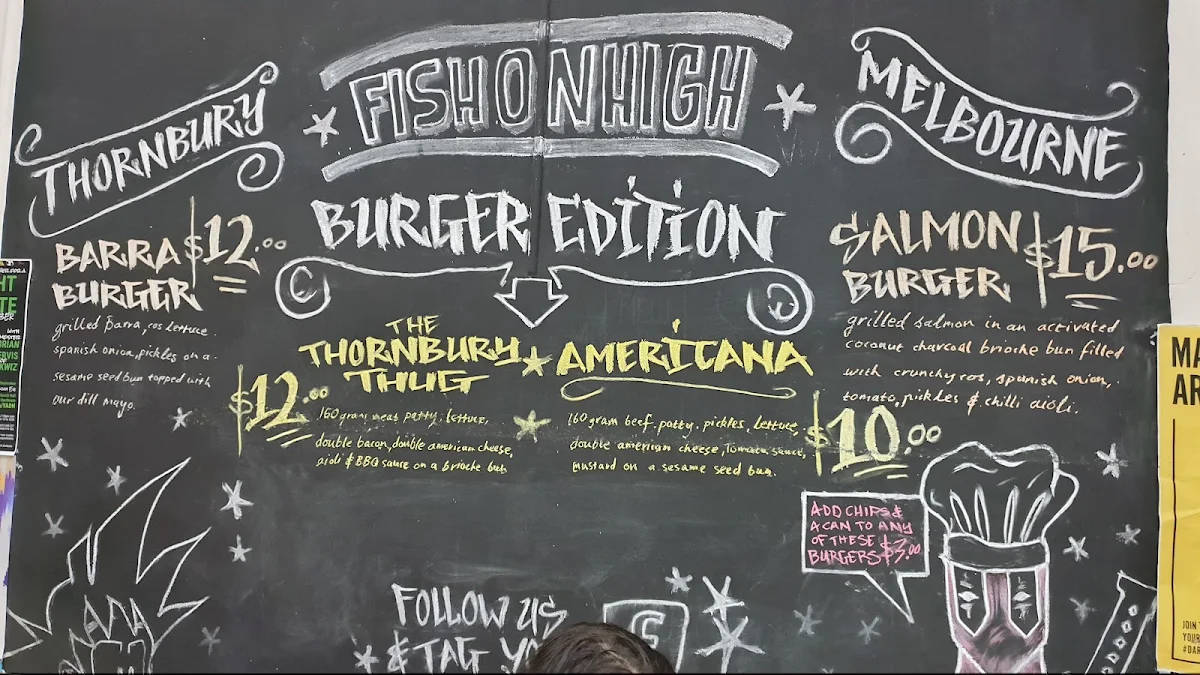 THORNBURY
FISH ON HIGH
MELBOURNE
BURGER EDITION
BARRA $12.00
BURGER
grilled Barra, cos lettuce
spanish onion, pickles on a
sesame seed bun topped with
our dill mayo.
THE
THORNBURY
THUG
$12.00
160 gram meat patty, lettuce,
double bacon, double american cheese,
aioli & BBQ sauce on a brioche bun
AMERICANA
$10.00
160 gram beef patty. pickles, lettuce,
double american cheese, Tomato sauce,
mustard on a sesame seed bun
SALMON $15.00
BURGER
grilled salmon in an activated
coconut charcoal brioche bun filled
with crunchy cos, spanish onion,
tomato, pickles & chilli aioli.
ADD CHIPS &
A CAN TO ANY
OF THESE
BURGERS $3.00
FOLLOW US
& TAG
MA
AR
JOIN
YOUR
#DAR